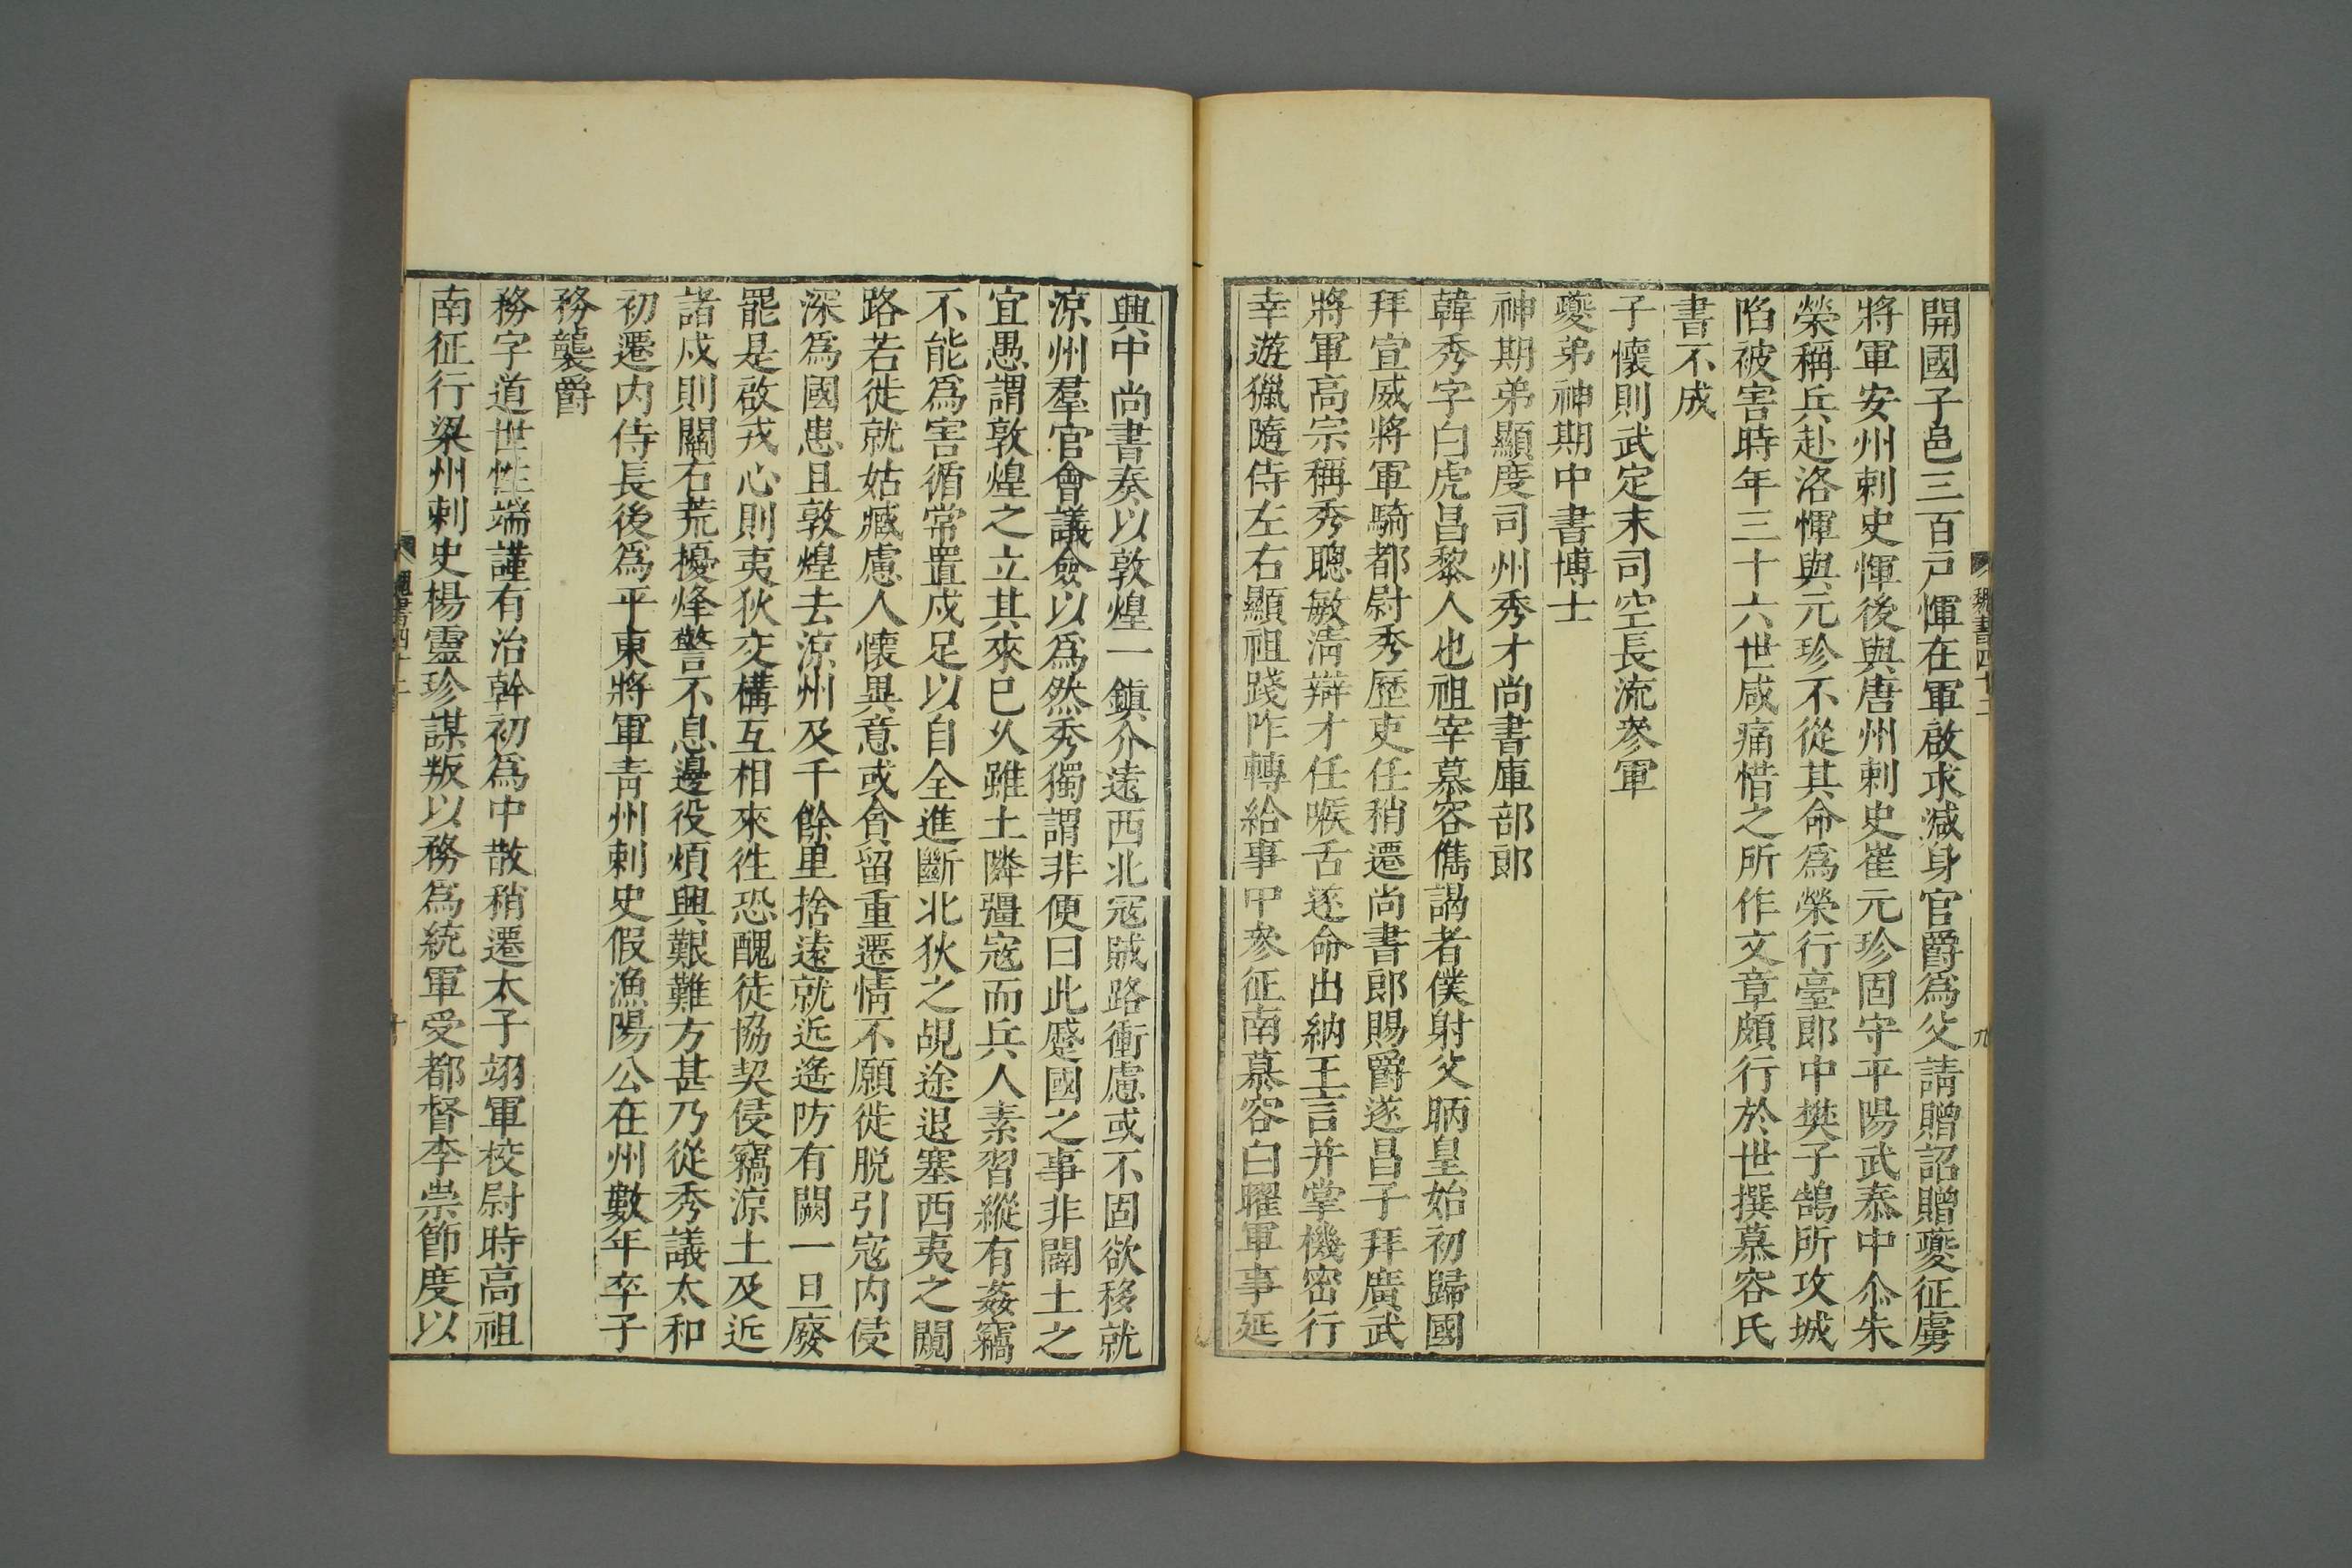 開國子邑三百戸惲在軍啟求減身官爵爲父請贈詔贈夔征虜
將軍安州刺史惲後與唐州刺史崔元珍固守平陽武泰中尒朱
榮稱兵赴洛惲與元珍不從其命爲榮行臺郎中樊子鵠所攻城
陷被害時年三十六世咸痛惜之所作文章頗行於世撰慕容氏
書不成
子懷則武定末司空長流參軍
夔弟神期中書博士
神期弟顯度司州秀才尚書庫部郎
韓秀字白虎昌黎人也祖宰慕容儁謁者僕射父昞皇始初歸國
拜宣威將軍騎都尉秀歷吏任稍遷尚書郎賜爵遂昌子拜廣武
將軍高宗稱秀聰敏淸辯才任喉舌遂命出納王言并掌機密行
幸遊獵隨侍左右顯祖踐阼轉給事中參征南慕容白曜軍事延
魏書四十二
九
興中尚書奏以敦煌一鎮介遠西北寇賊路衝慮或不固欲移就
涼州羣官會議僉以爲然秀獨謂非便曰此蹙國之事非闢土之
宜愚謂敦煌之立其來已久雖土隣彊寇而兵人素習縱有姦竊
不能爲害循常置戍足以自全進斷北狄之覘途退塞西夷之闚
路若徙就姑臧慮人懷異意或貪留重遷情不願徙脱引寇内侵
深爲國患且敦煌去涼州及千餘里捨遠就近遙防有闕一旦廢
罷是啟戎心則夷狄交構互相來徃恐醜徒協契侵竊涼土及近
諸戍則關右荒擾烽警不息邊役煩興艱難方甚乃從秀議太和
初遷内侍長後爲平東將軍青州刺史假漁陽公在州數年卒子
務襲爵
務字道世性端謹有治幹初爲中散稍遷太子翊軍校尉時高祖
南征行梁州刺史楊靈珍謀叛以務爲統軍受都督李崇節度以
魏書四十二
十